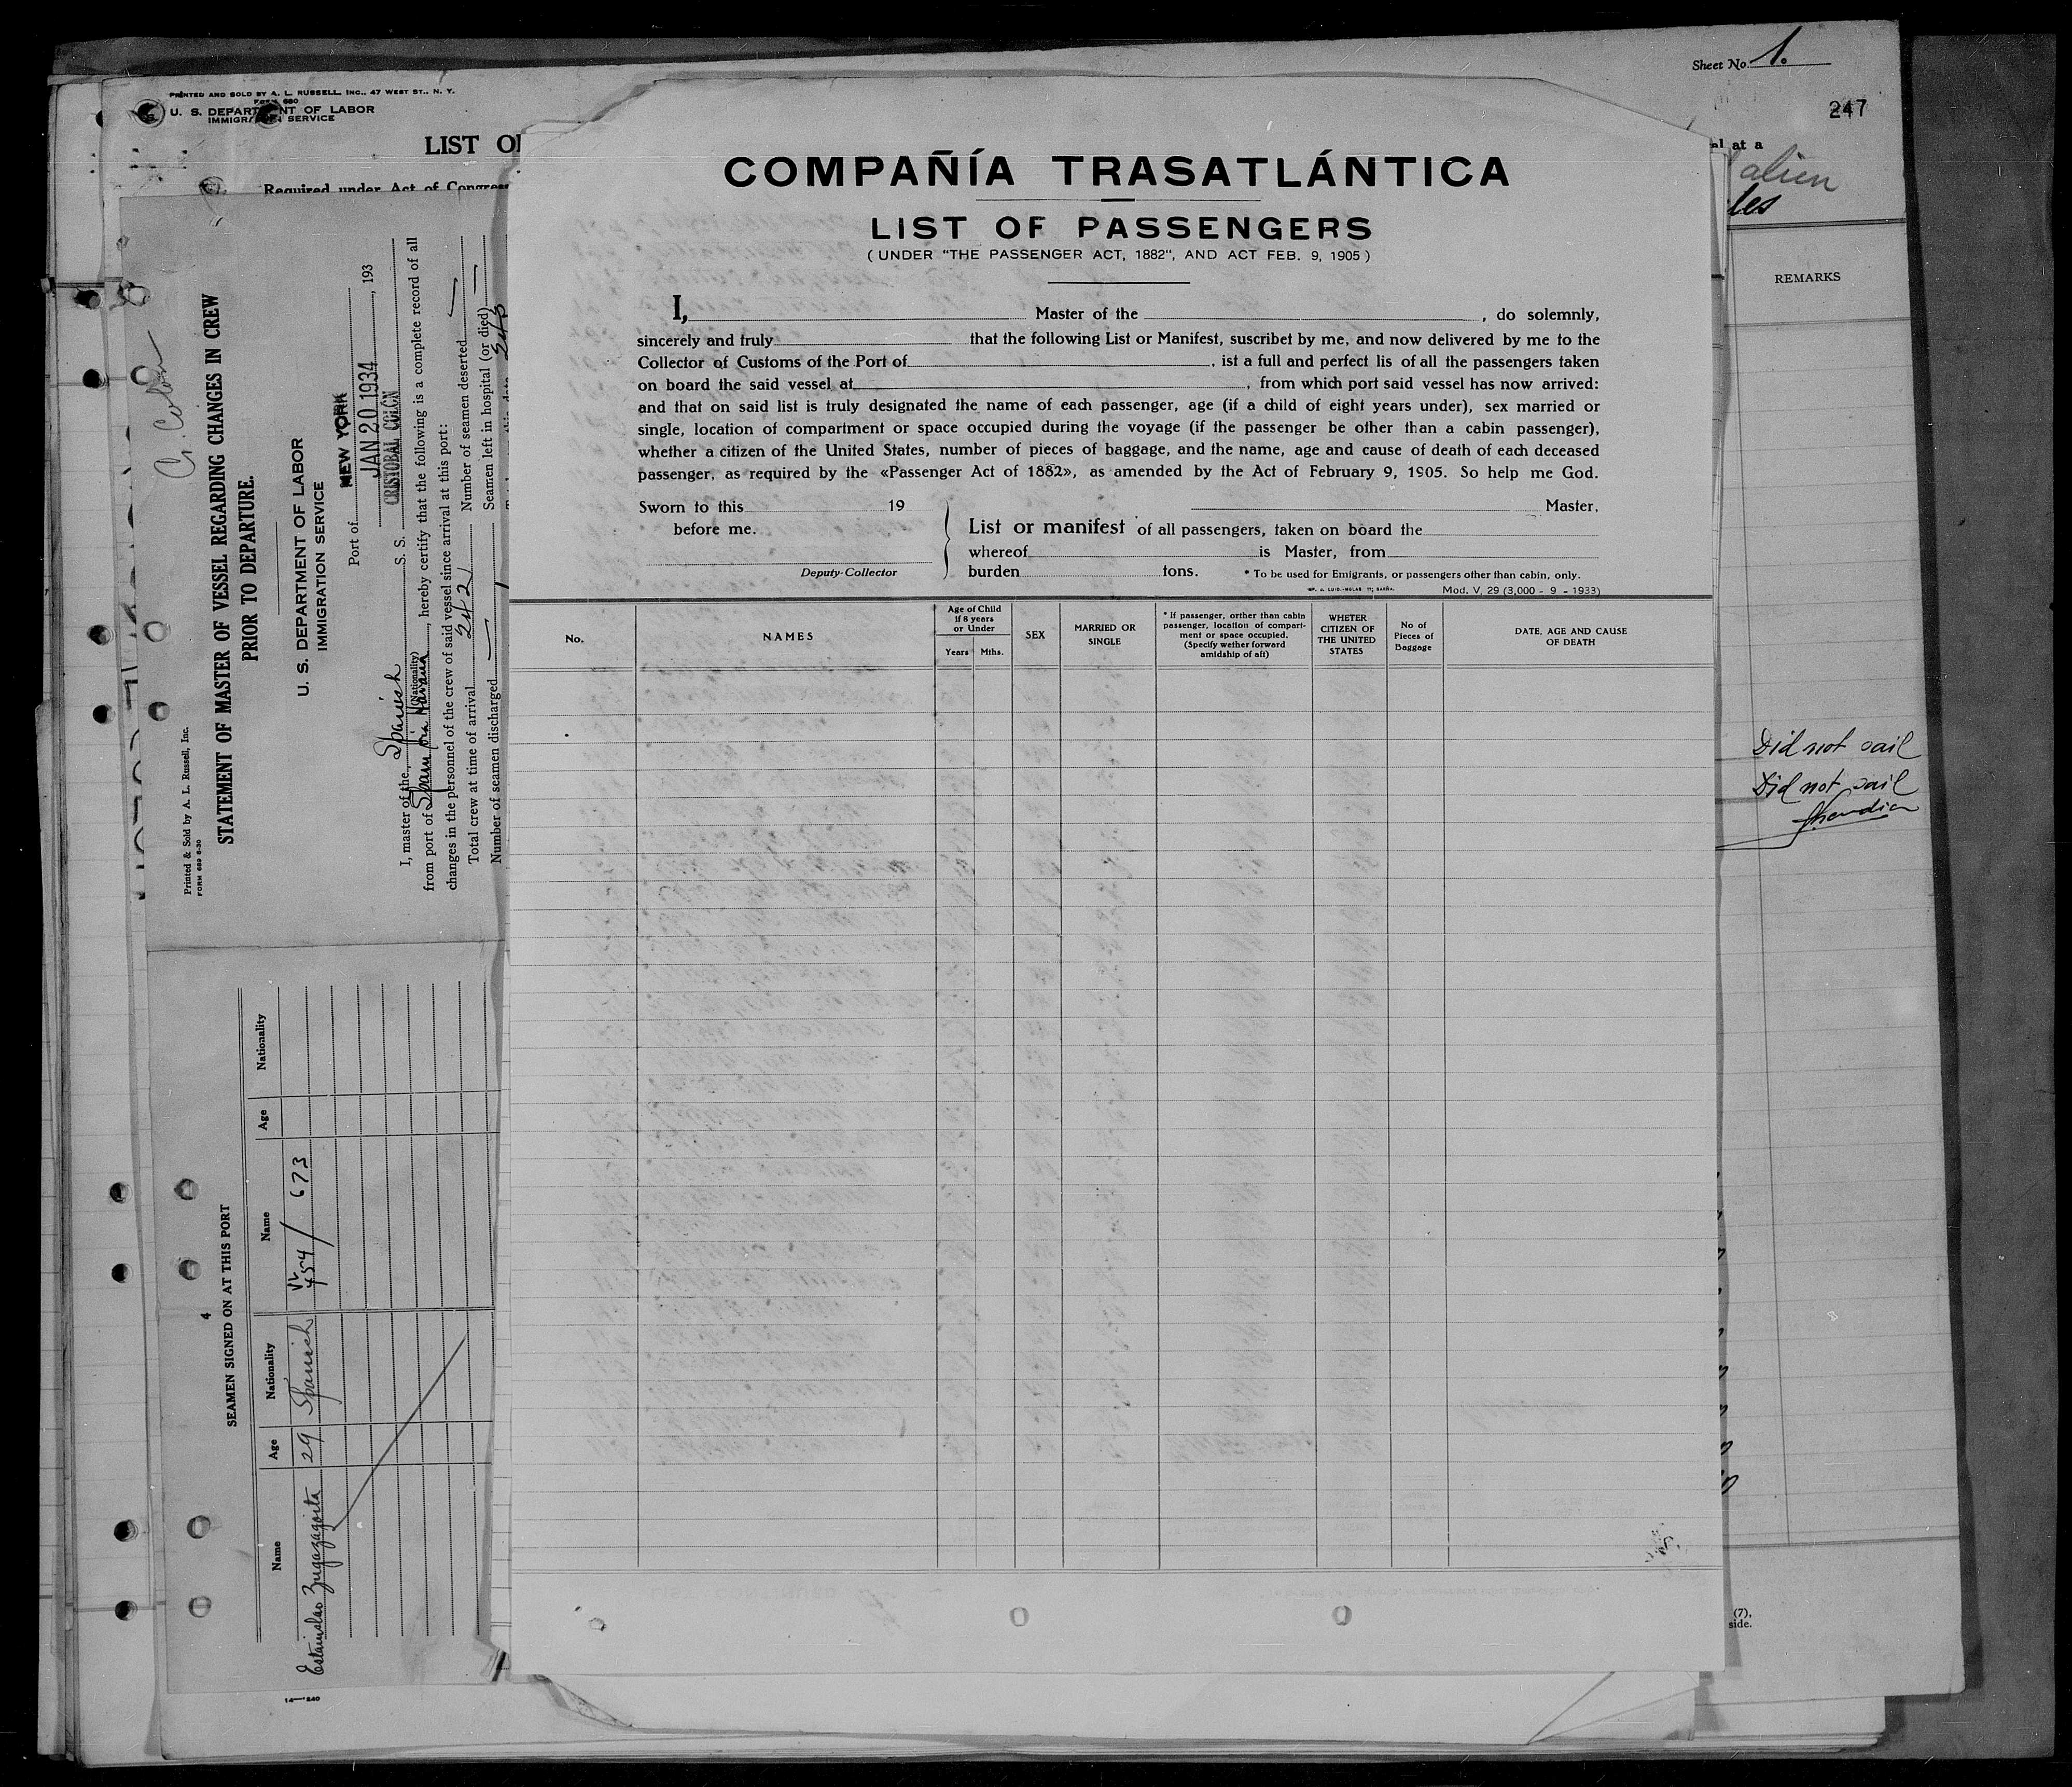 Sheet No. 1.
247
PRINTED AND SOLD BY A. L. RUSSELL, INC., 47 WEST ST., N. Y.
FORM 680
U. S. DEPARTMENT OF LABOR
IMMIGRATION SERVICE
LIST OF
Required under Act of Congress
al at a
alien
les
REMARKS
Did not sail
Did not sail
(7),
side.
Cr. Colon
Printed & Sold by A. L. Russell, Inc.
FORM 689 6-30
STATEMENT OF MASTER OF VESSEL REGARDING CHANGES IN CREW
PRIOR TO DEPARTURE.
U. S. DEPARTMENT OF LABOR
IMMIGRATION SERVICE
Port of NEW YORK
JAN 20 1934, 193
I, master of the Spanish S. S. CRISTOBAL COLON
(Nationality)
from port of Spain via Havana, hereby certify that the following is a complete record of all
changes in the personnel of the crew of said vessel since arrival at this port:
Total crew at time of arrival 242 Number of seamen deserted —
Number of seamen discharged — Seamen left in hospital (or died) —
1 243
4
SEAMEN SIGNED ON AT THIS PORT
Name Age Nationality Name Age Nationality
Estanislao Zugazagoita 29 Spanish VL 454/673
14—240
COMPAÑÍA TRASATLÁNTICA
LIST OF PASSENGERS
( UNDER "THE PASSENGER ACT, 1882", AND ACT FEB. 9, 1905 )
I, Master of the , do solemnly,
sincerely and truly that the following List or Manifest, suscribet by me, and now delivered by me to the
Collector of Customs of the Port of , ist a full and perfect lis of all the passengers taken
on board the said vessel at , from which port said vessel has now arrived:
and that on said list is truly designated the name of each passenger, age (if a child of eight years under), sex married or
single, location of compartment or space occupied during the voyage (if the passenger be other than a cabin passenger),
whether a citizen of the United States, number of pieces of baggage, and the name, age and cause of death of each deceased
passenger, as required by the «Passenger Act of 1882», as amended by the Act of February 9, 1905. So help me God.
Sworn to this 19 Master.
before me.
Deputy-Collector
List or manifest of all passengers, taken on board the
whereof is Master, from
burden tons. * To be used for Emigrants, or passengers other than cabin, only.
Mod. V, 29 (3,000 - 9 - 1933)
No.
NAMES
Age of Child
if 8 years
or Under
Years Mths.
SEX
MARRIED OR
SINGLE
* If passenger, orther than cabin
passenger, location of compart-
ment or space occupied.
(Specify wether forward
amidship of aft)
WHETER
CITIZEN OF
THE UNITED
STATES
No of
Pieces of
Baggage
DATE, AGE AND CAUSE
OF DEATH